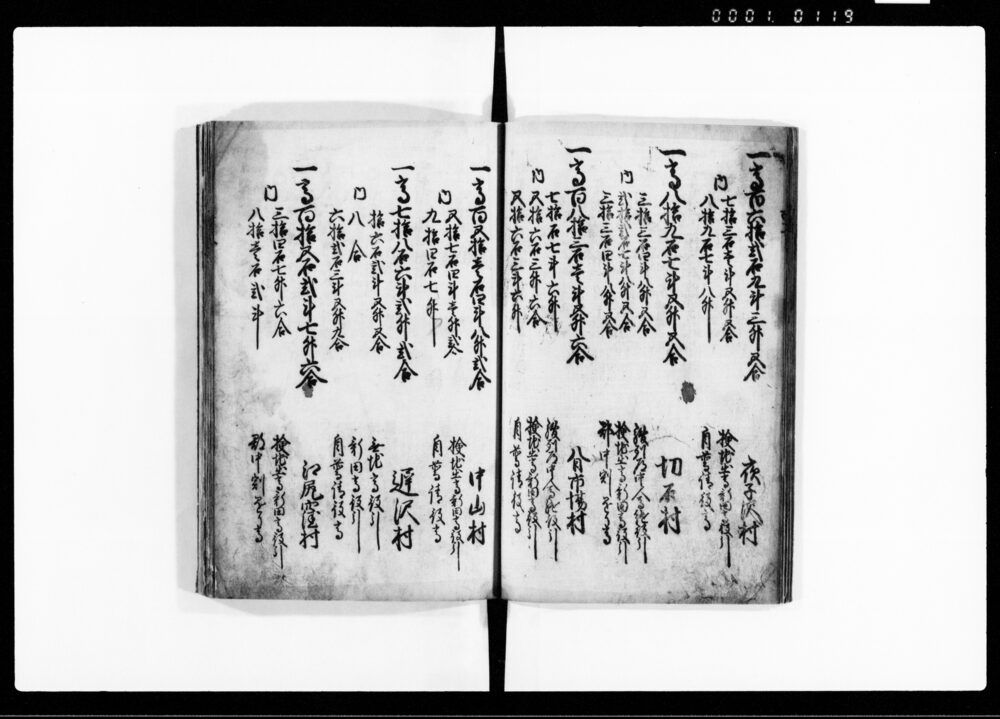 0001.0119
一高百六拾弐石九斗三升五合
夜子沢村
内
七拾三石壱斗五升五合
検地出高新田高段引
八拾九石七斗八升
有高清役高
一高八拾九石七斗五升五合
切石村
内
三拾三石四斗八升五合
弐拾弐石七斗八升五合
検地出高新田高段引
三拾三石四斗八升五合
郡中割
一高百八拾三石壱斗五升六合
八日市場村
内
七拾石七斗六升
五拾六石三升六合
検地出高新田高段引
五拾六石三斗六升
有高清役高
一高百五拾壱石四斗八升弐合
中山村
内
五拾七石四斗壱升弐合
検地出高新田高段引
九拾四石七升
有高清役高
一高七拾八石六斗弐升弐合
遅沢村
内
拾六石弐斗五升五合
八合
新田高段引
六拾弐石三斗五升九合
有高清役高
一高百拾五石弐斗七升六合
江尻窪村
内
三拾四石七升六合
検地出高新田高段引
八拾壱石弐斗
郡中割